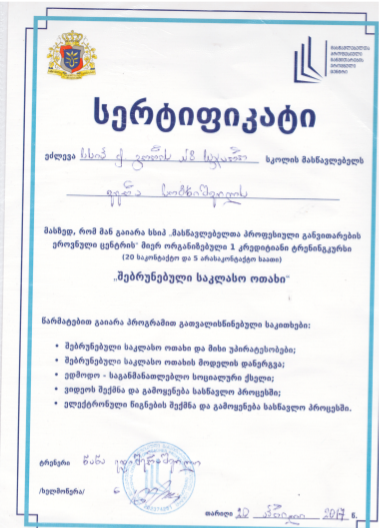 მასწავლებელთა
პროფესიული
განვითარების
ეროვნული
ცენტრი
სერტიფიკატი
ეძლევა სსიპ ქ. გორის №8 საჯარო სკოლის მასწავლებელს
მასზედ, რომ მან გაიარა სსიპ „მასწავლებელთა პროფესიული განვითარების
ეროვნული ცენტრის" მიერ ორგანიზებული 1 კრედიტიანი ტრენინგკურსი
(20 საკონტაქტო და 5 არასაკონტაქტო საათი)
„შებრუნებული საკლასო ოთახი"
წარმატებით გაიარა პროგრამით გათვალისწინებული საკითხები:
• შებრუნებული საკლასო ოთახი და მისი უპირატესობები;
• შებრუნებული საკლასო ოთახის მოდელის დანერგვა;
• ედმოდო - საგანმანათლებლო სოციალური ქსელი;
• ვიდეოს შექმნა და გამოყენება სასწავლო პროცესში;
• ელექტრონული წიგნების შექმნა და გამოყენება სასწავლო პროცესში.
ტრენერი ნანა
/ხელმოწერა/
თარიღი 20 აპრილი 2017 წ.